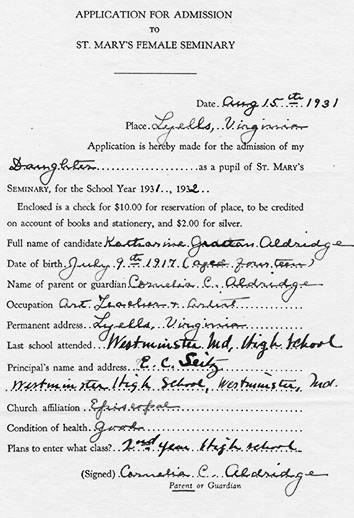 APPLICATION FOR ADMISSION
TO
ST. MARY'S FEMALE SEMINARY
Date. Aug 15th 1931
Place. Lyells, Virginia
Application is hereby made for the admission of my
Daughter as a pupil of ST. MARY'S
SEMINARY, for the School Year 1931.., 1932..
Enclosed is a check for $10.00 for reservation of place, to be credited
on account of books and stationery, and $2.00 for silver.
Full name of candidate Katharine Grattan Aldridge
Date of birth July 9th 1917 (age fourteen)
Name of parent or guardian Cornelia C. Aldridge
Occupation Art Teacher & Artist
Permanent address. Lyells, Virginia
Last school attended.. Westminster Md, High School
Principal's name and address. E. C. Seitz
Westminster High School, Westminster, Md.
Church affiliation Episcopal
Condition of health. Good
Plans to enter what class? 2nd year High school
(Signed) Cornelia C. Aldridge
Parent or Guardian